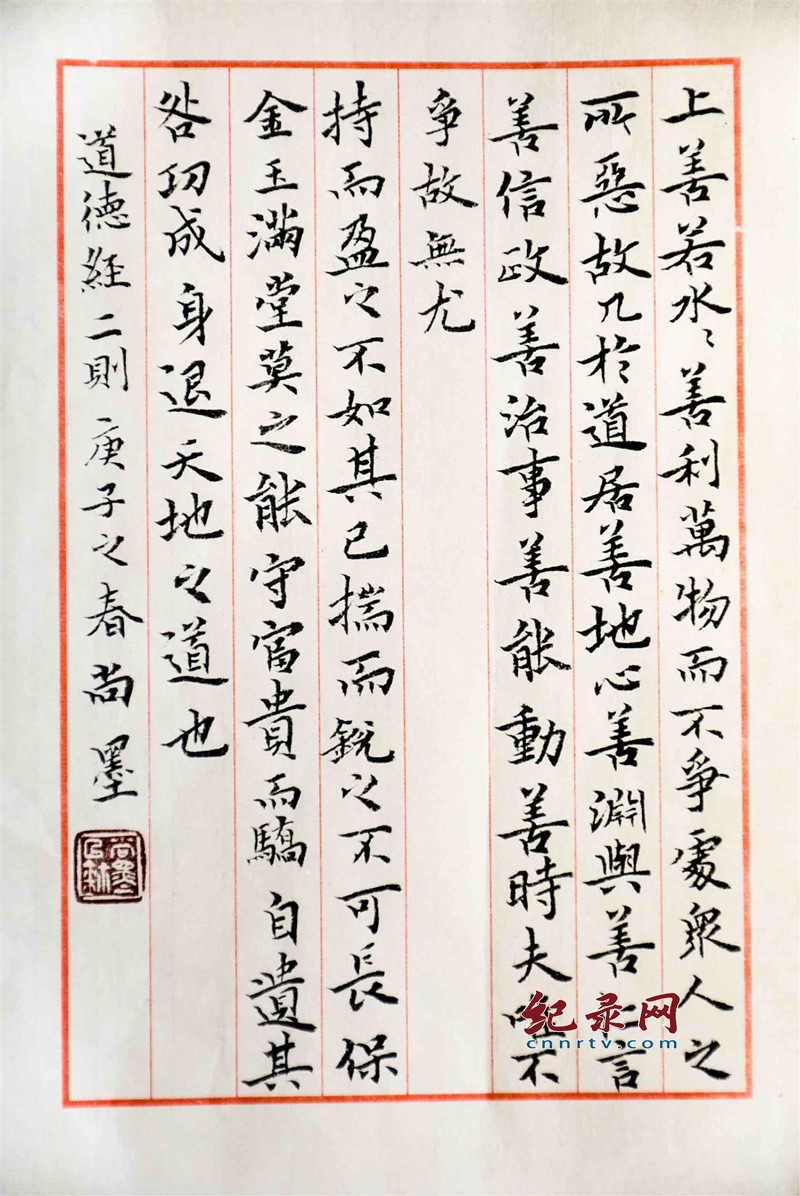 上善若水〻善利萬物而不爭處衆人之
所惡故几於道居善地心善淵與善仁言
善信政善治事善能動善時夫唯不
爭故無尤
持而盈之不如其已揣而銳之不可長保
金玉滿堂莫之能守富貴而驕自遺其
咎功成身退天地之道也
道德經二則庚子之春尚墨
纪录网
cnnrtv.com